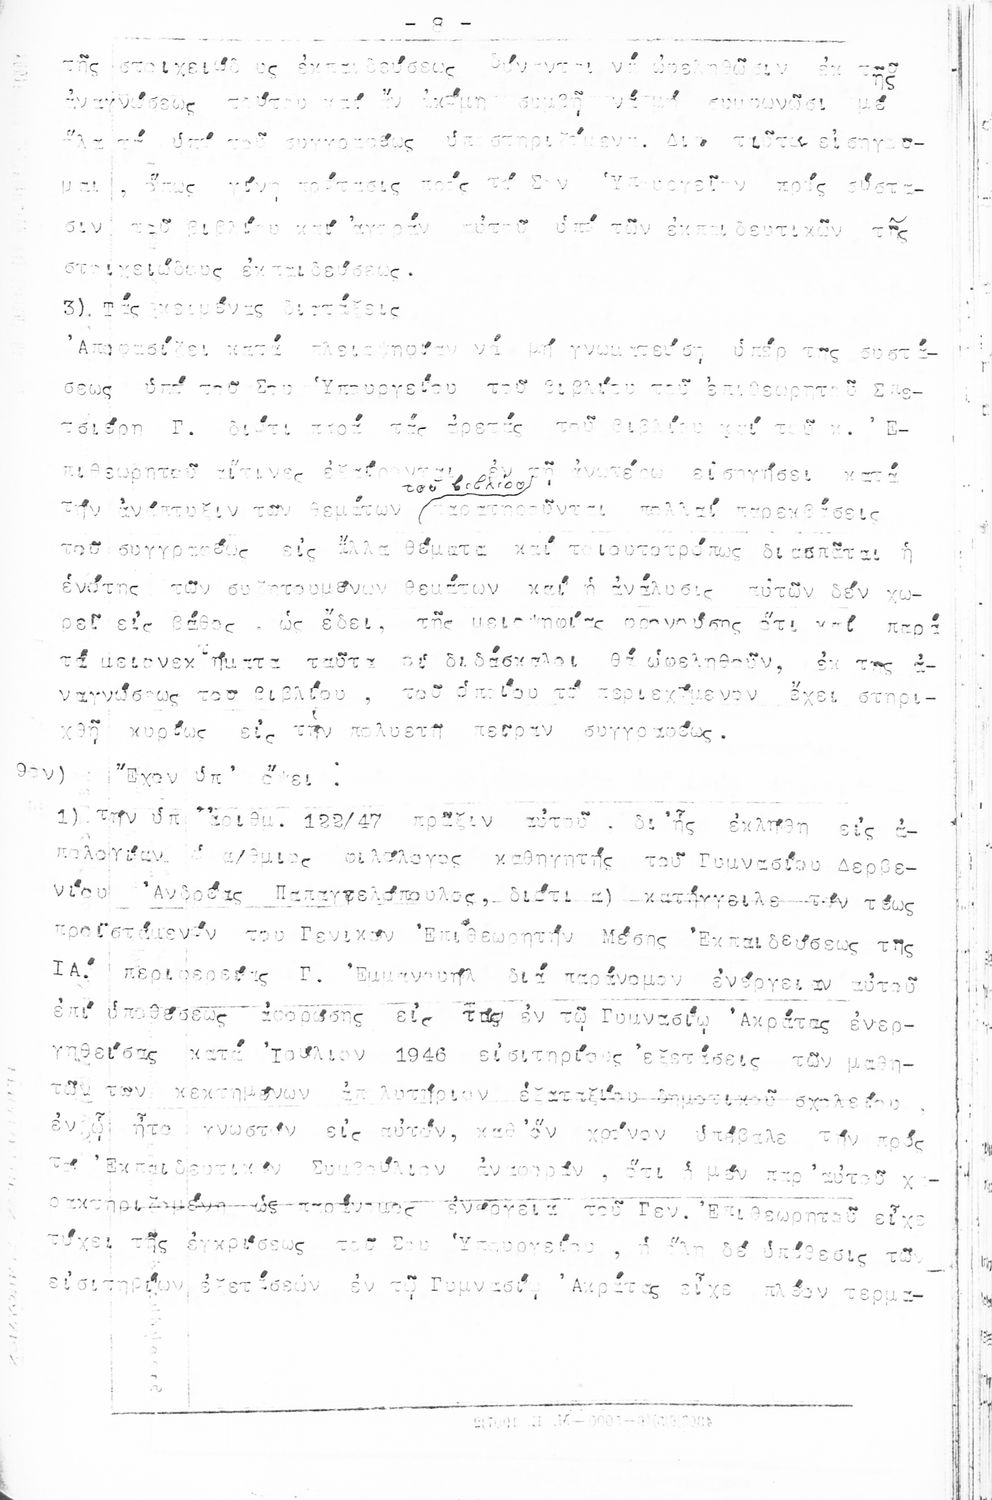 - 8 -
τῆς στοιχειώδους ἐκπαιδεύσεως δύνανται νά ὠφεληθῶσιν ἐκ τῆς
ἀναγνώσεως τούτου καί ἄν ἀκόμη συμβῇ νά μή συμφωνῶσι μέ
ὅλα τά ὑπό τοῦ συγγραφέως ὑποστηριζόμενα. Διά ταῦτα εἰσηγοῦ-
μαι , ὅπως γίνῃ πρότασις πρός τό Σον Ὑπουργεῖον πρός σύστα-
σιν τοῦ βιβλίου καί ἀγοράν αὐτοῦ ὑπό τῶν ἐκπαιδευτικῶν τῆς
στοιχειώδους ἐκπαιδεύσεως.
3). Τάς κειμένας διατάξεις
Ἀποφασίζει κατά πλειοψηφίαν νά μή γνωματεύσῃ ὑπέρ της συστά-
σεως ὑπό τοῦ Σου Ὑπουργείου τοῦ βιβλίου τοῦ ἐπιθεωρητοῦ
Γ. διότι παρά τάς ἀρετάς τοῦ βιβλίου καί τοῦ κ. Ἐ-
πιθεωρητοῦ αἵτινες ἐξαίρονται ἐν τῇ ἀνωτέρω εἰσηγήσει κατά
τοῦ βιβλίου
τήν ἀνάπτυξιν των θεμάτων παρατηροῦνται πολλαί παρεκβάσεις
τοῦ συγγραφέως εἰς ἄλλα θέματα καί τοιουτοτρόπως διασπᾶται ἡ
ἑνότης τῶν συζητουμένων θεμάτων καί ἡ ἀνάλυσις αὐτῶν δέν χω-
ρεῖ εἰς βάθος . ὡς ἔδει, τῆς μειοψηφίας φρονούσης ὅτι καί παρά
τά μειονεκτήματα ταῦτα οἱ διδάσκαλοι θά ὠφεληθοῦν, ἐκ της ἀ-
ναγνώσεως του βιβλίου , τοῦ ὁποίου τό περιεχόμενον ἔχει στηρι-
χθῆ κυρίως εἰς τήν πολυετῆ πεῖραν συγγραφέως.
9ον) Ἔχον ὑπ' ὄψει :
1) Τήν ὑπ' ἀριθμ. 122/47 πρᾶξιν αὐτοῦ . δι'ἧς ἐκλήθη εἰς ἀ-
πολογίαν ὁ α/θμιος φιλόλογος καθηγητής τοῦ Γυμνασίου Δερβε-
νίου Ἀνδρέας Παπαγγελόπουλος, διότι α) κατήγγειλε τόν τέως
προϊστάμενόν του Γενικόν Ἐπιθεωρητήν Μέσης Ἐκπαιδεύσεως τῆς
ΙΑ! περιφερείας Γ. Ἐμμανουήλ διά παράνομον ἐνέργειαν αὐτοῦ
ἐπί ὑποθέσεως ἀφορώσης εἰς τάς ἐν τῷ Γυμνασίῳ Ἀκράτας ἐνερ-
γηθείσας κατά Ἰούλιον 1946 εἰσιτηρίους ἐξετάσεις τῶν μαθη-
τῶν των κεκτημένων ἀπολυτήριον ἑξαταξίου δημοτικοῦ σχολείου ,
ἐνῷ ἦτο γνωστόν εἰς αὐτόν, καθ'ὅν χρόνον ὑπέβαλε τήν πρός
τό Ἐκπαιδευτικόν Συμβούλιον ἀναφοράν , ὅτι ἡ μέν παρ'αὐτοῦ χα-
ρακτηριζομένη ὡς παράνομος ἐνέργεια τοῦ Γεν. Ἐπιθεωρητοῦ εἶχε
τύχει τῆς ἐγκρίσεως τοῦ Σου Ὑπουργείου , ἡ ὅλη δέ ὑπόθεσις τῶν
εἰσιτηρίων ἐξετάσεών ἐν τῷ Γυμνασίῳ Ἀκράτας εἶχε πλέον τερμα-